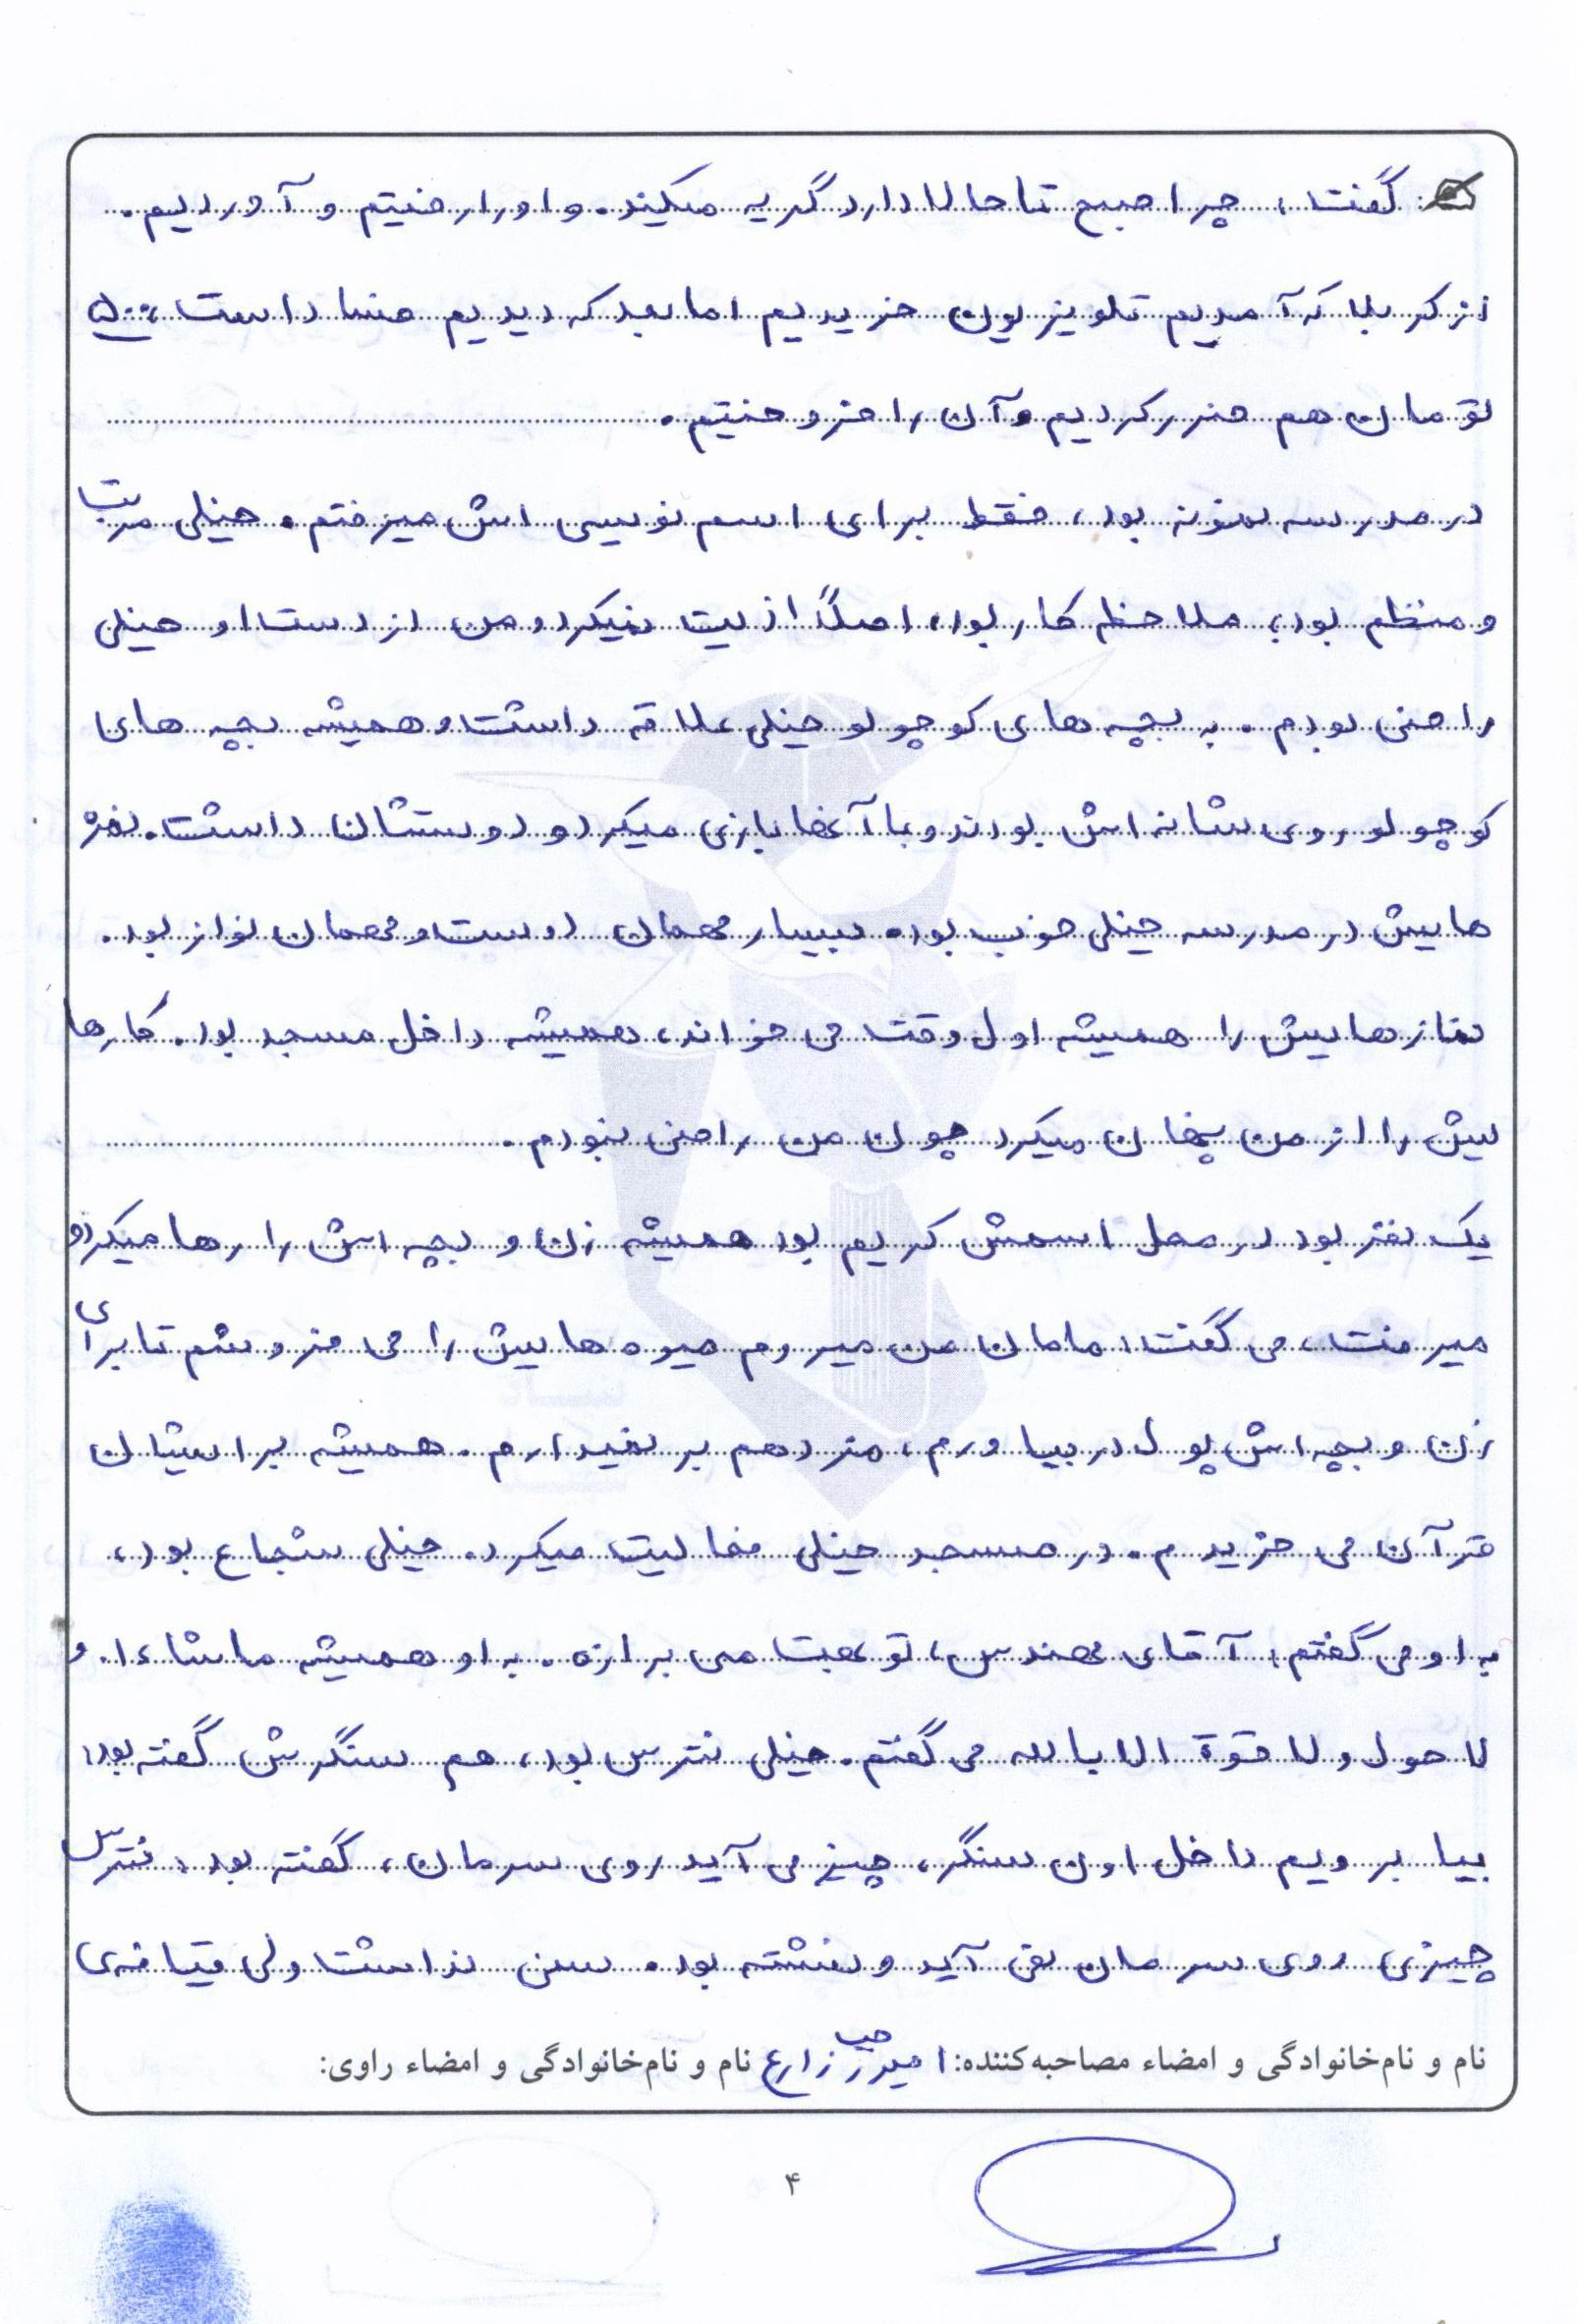 گفت، چرا صبح تا حالا دارد گریه میکند. و او را رفتیم و آوردیم.
از کربلا که آمدیم تلویزیون خریدیم اما بعد که دیدیم فساد است، ۵۰۰
تومان هم ضرر کردیم و آن را فروختیم.
در مدرسه نمونه بود، فقط برای اسم نویسی اش میرفتم. خیلی مرتب
و منظم بود، ملاحظه کار بود، اصلاً اذیت نمیکرد و من از دست او خیلی
راضی بودم. به بچه های کوچولو خیلی علاقه داشت و همیشه بچه های
کوچولو روی شانه اش بودند و با آنها بازی میکرد و دوستشان داشت. نمره
هایش در مدرسه خیلی خوب بود. بسیار مهمان دوست و مهمان نواز بود.
نمازهایش را همیشه اول وقت می خواند، همیشه داخل مسجد بود. کارها
یش را از من پنهان میکرد چون من راضی نبودم.
یک نفر بود در محل اسمش کریم بود همیشه زن و بچه اش را رها میکرد و
میرفت، می گفت: مامان من میروم میوه هایش را می فروشم تا برای
زن و بچه اش پول در بیاورم، مزد هم بر نمیدارم. همیشه برایشان
قرآن می خریدم. در مسجد خیلی فعالیت میکرد. خیلی شجاع بود،
به او می گفتم: آقای مهندس، تو بهت می برازه. به او همیشه ماشاءا. و
لا حول و لا قوة الا بالله می گفتم. خیلی نترس بود، هم سنگرش گفته بود:
بیا برویم داخل اون سنگر، چیز می آید روی سرمان، گفته بود: نترس
چیزی روی سرمان نمی آید و نشسته بود. سن نداشت ولی قیافه ی
نام و نام‌خانوادگی و امضاء مصاحبه‌کننده: امیررجب زارع نام و نام‌خانوادگی و امضاء راوی:
۴